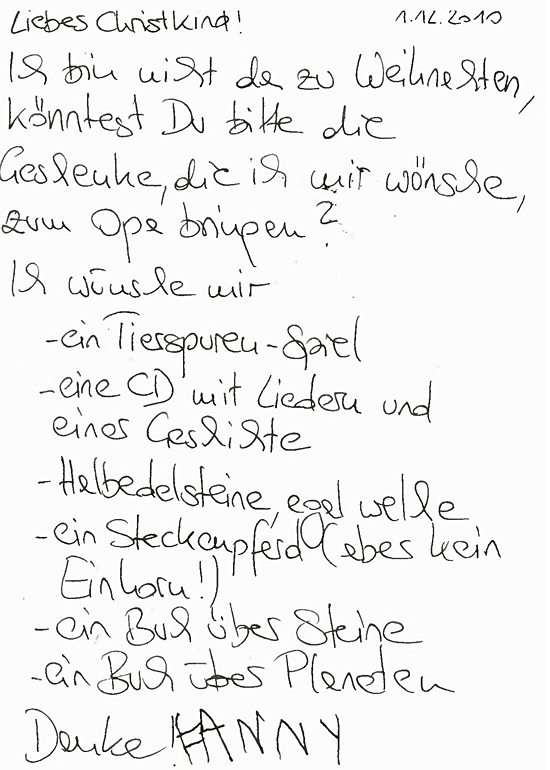 Liebes Christkind! 1.12.2010
Ich bin nicht da zu Weihnachten,
könntest Du bitte die
Geschenke, die ich mir wünsche,
zum Opa bringen?
Ich wünsche mir
-ein Tierspuren-Spiel
-eine CD mit Liedern und
einer Geschichte
-Halbedelsteine, egal welche
-ein Steckenpferd (aber kein
Einhorn!)
-ein Buch über Steine
-ein Buch über Planeten
Danke! FANNY